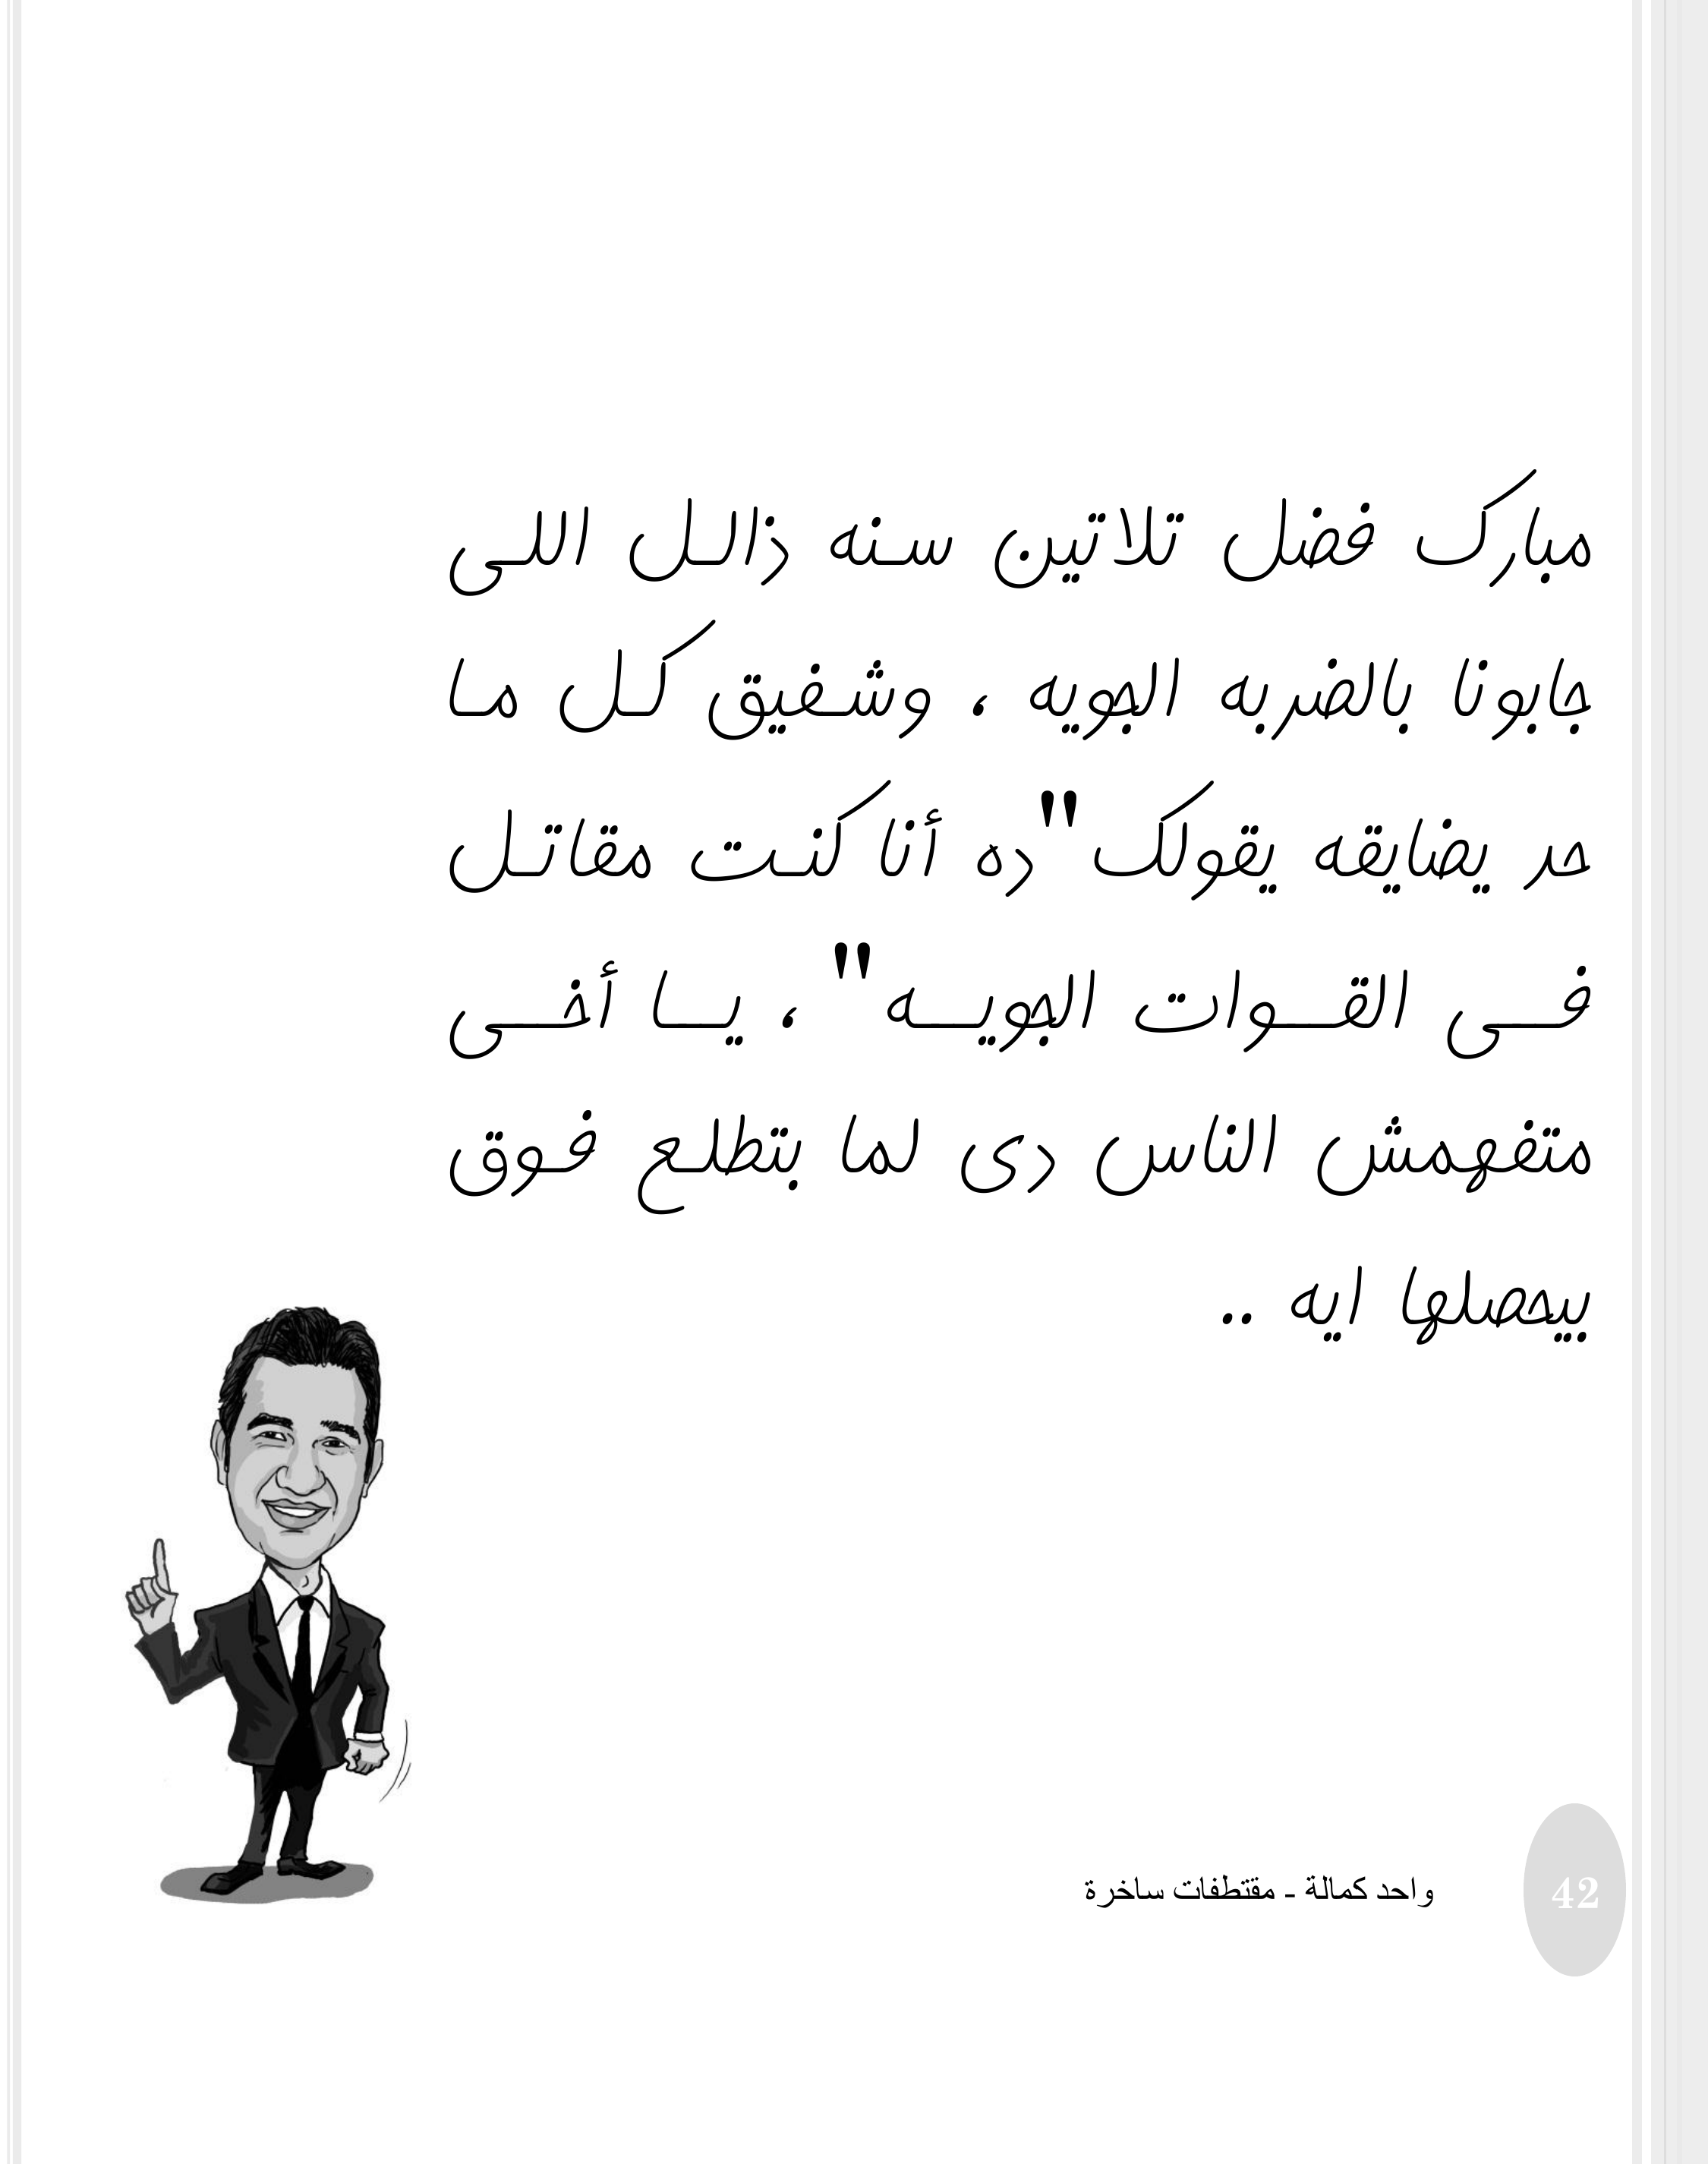 مبارك فضل تلاتين سنه ذالل اللى
جابونا بالضربه الجويه ، وشفيق كل ما
حد يضايقه يقولك "ده أنا كنت مقاتل
فى القوات الجويه" ، يا أخى
متفهمش الناس دى لما بتطلع فوق
بيحصلها ايه ..
واحد كمالة - مقتطفات ساخرة
42